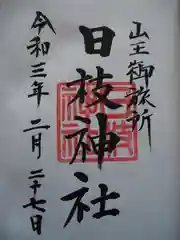 山王御旅所
日枝神社
令和三年二月二十七日